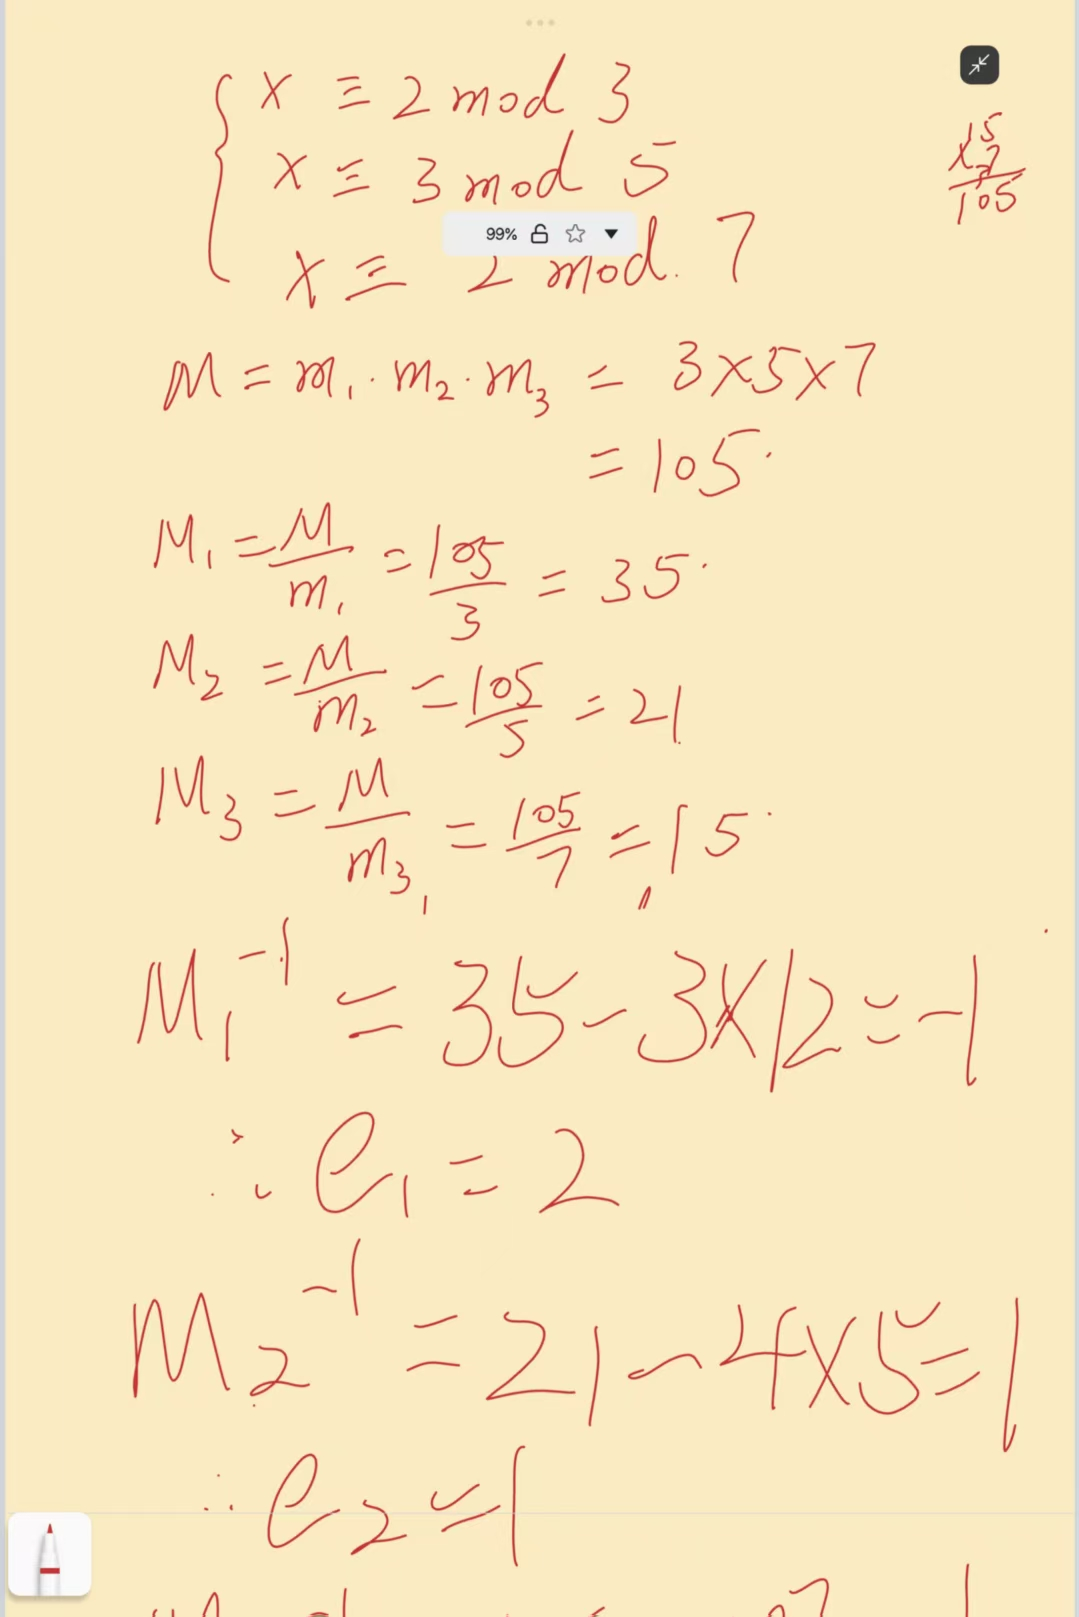 x ≡ 2 mod 3
x ≡ 3 mod 5
99%
x ≡ 2 mod. 7
15
x 7
105
M = m₁ · m₂ · m₃ = 3×5×7
= 105.
M₁ = M/m₁ = 105/3 = 35.
M₂ = M/m₂ = 105/5 = 21
M₃ = M/m₃ = 105/7 = 15.
M₁⁻¹ = 35 - 3×12 = -1
∴ e₁ = 2
M₂⁻¹ = 21 - 4×5 = 1
∴ e₂ = 1